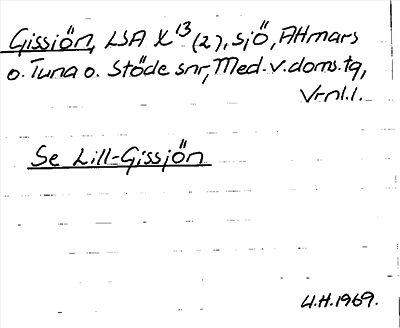 Gissjön, LSA X¹³ (2), sjö, Attmars
o. Tuna o. Stöde snr, Med. v. doms. tg,
Vrnl. l.
Se Lill-Gissjön
U.H. 1969.